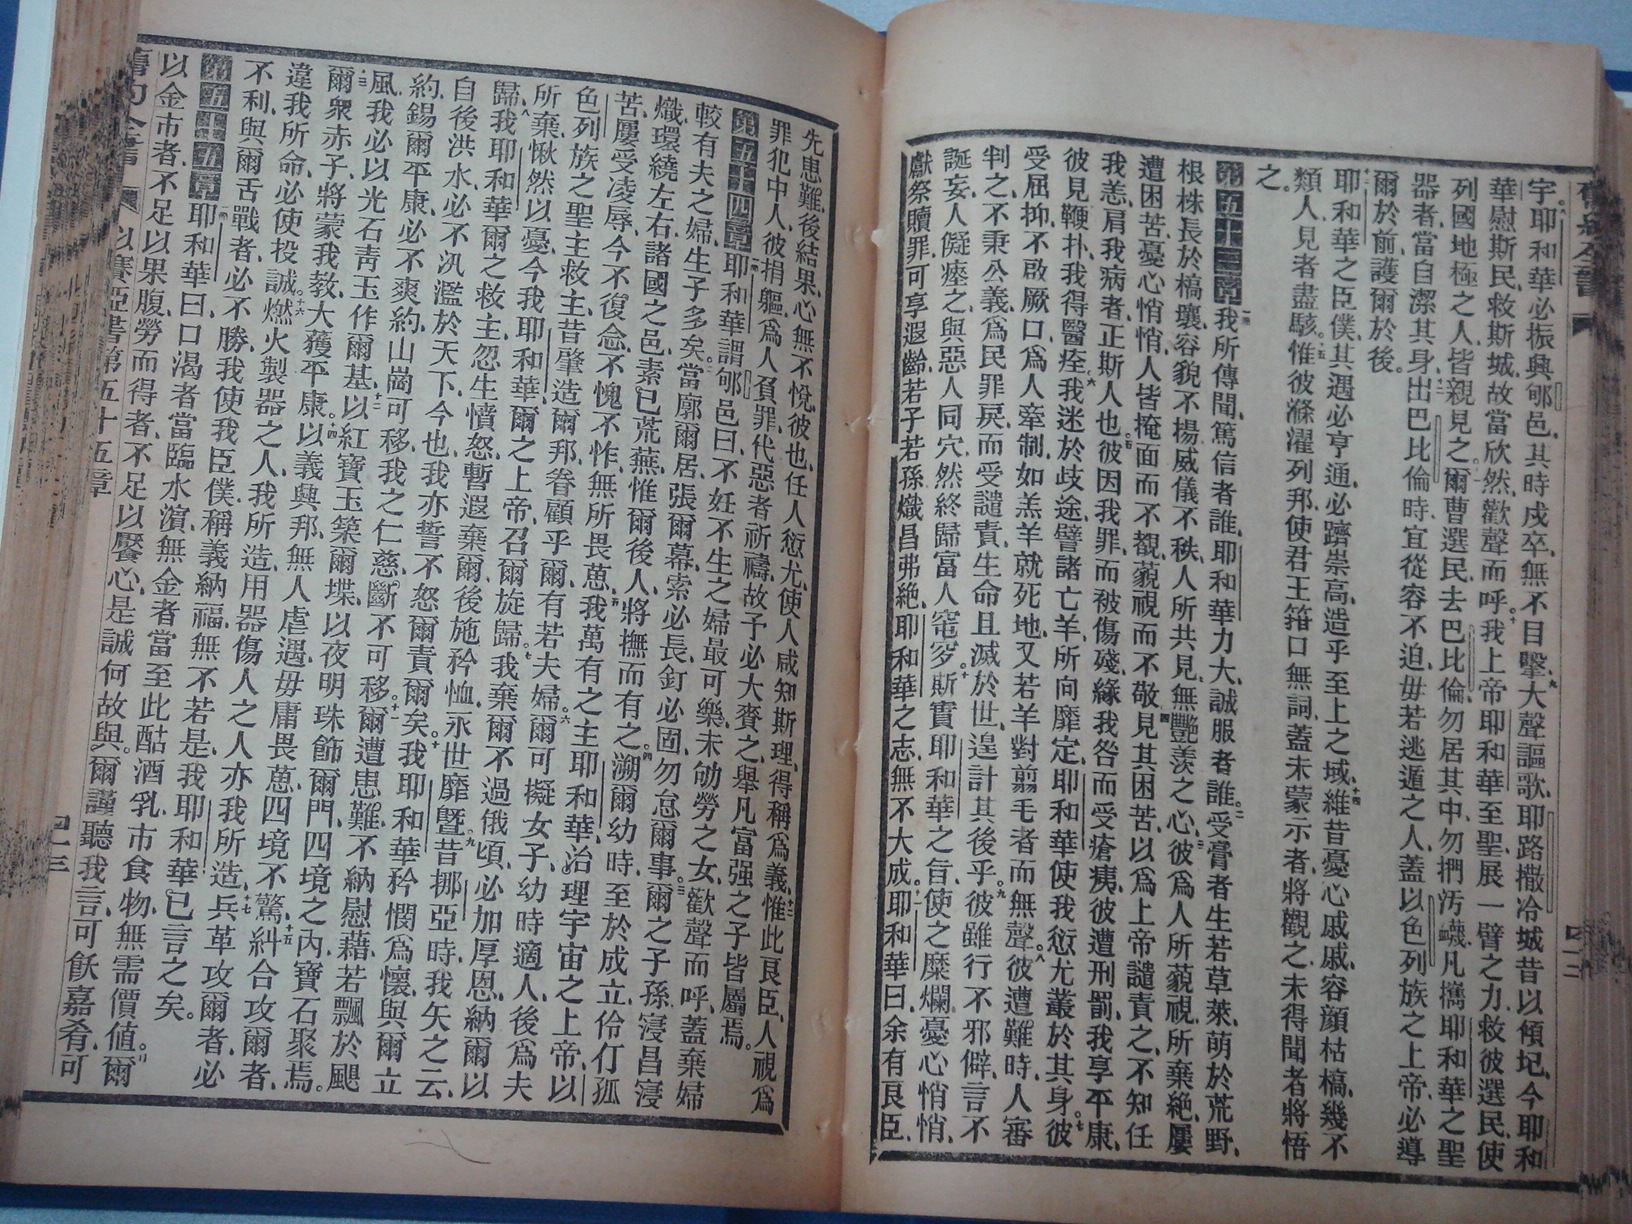 宇、耶和華必振興郇邑、其時戍卒、無不目擊、大聲謳歌、耶路撒冷城昔以傾圮、今耶和
華慰斯民、救斯城、故當欣然歡聲而呼、我上帝耶和華至聖、展一臂之力、救彼選民、使
列國地極之人、皆親見之、爾曹選民、去巴比倫、勿居其中、勿捫汚衊、凡攜耶和華之聖
器者、當自潔其身、出巴比倫時、宜從容不迫、毋若逃遁之人、蓋以色列族之上帝必導
爾於前、護爾於後。
耶和華之臣僕、其遇必亨通、必躋崇高、造乎至上之域、維昔憂心戚戚、容顏枯槁、幾不
類人、見者盡駭、惟彼滌濯列邦、使君王箝口無詞、蓋未蒙示者、將觀之、未得聞者、將悟
之。
第五十三章 我所傳聞、篤信者誰、耶和華力大、誠服者誰。受膏者生若草萊、萌於荒野、
根株長於槁壤、容貌不揚、威儀不秩、人所共見、無艷羨之心、彼爲人所藐視、所棄絶、屢
遭困苦、憂心悄悄、人皆掩面而不覩、藐視而不敬、見其困苦、以爲上帝譴責之、不知任
我恙、肩我病者、正斯人也、彼因我罪而被傷殘、緣我咎而受瘡痍、彼遭刑罰、我享平康、
彼見鞭扑、我得醫痊、我迷於歧途、譬諸亡羊、所向靡定、耶和華使我愆尤叢於其身、彼
受屈抑、不啟厥口、爲人牽制、如羔羊就死地、又若羊對翦毛者而無聲、彼遭難時、人審
判之、不秉公義、爲民罪戾、而受譴責、生命且滅於世、遑計其後乎、彼雖行不邪僻、言不
誕妄、人儗瘞之、與惡人同穴、然終歸富人窀穸、斯實耶和華之旨、使之糜爛、憂心悄悄、
獻祭贖罪、可享遐齡、若子若孫、熾昌弗絶、耶和華之志、無不大成、耶和華曰、余有良臣、
先患難、後結果、心無不悅、彼也、任人愆尤、使人咸知斯理、得稱爲義、惟此良臣、人視爲
罪犯中人、彼捐軀爲人負罪、代惡者祈禱、故予必大賚之、舉凡富强之子皆屬焉。
第五十四章 耶和華謂郇邑曰、不妊不生之婦最可樂、未劬勞之女、歡聲而呼、蓋棄婦
較有夫之婦、生子多矣、當廓爾居、張爾幕、索必長、釘必固、勿怠爾事、爾之子孫、寖昌寖
熾、環繞左右、諸國之邑、素已荒蕪、惟爾後人、將撫而有之、溯爾幼時、至於成立、伶仃孤
苦、屢受凌辱、今不復念、不愧不怍、無所畏葸、我萬有之主耶和華、治理宇宙之上帝、以
色列族之聖主救主、昔肇造爾邦、眷顧乎爾、有若夫婦、爾可擬女子、幼時適人、後爲夫
所棄、愀然以憂、今我耶和華、爾之上帝、召爾旋歸、我棄爾不過俄頃、必加厚恩、納爾以
歸、我耶和華爾之救主、忽生憤怒、暫遐棄爾、後施矜恤、永世靡曁、昔挪亞時、我矢之云、
自後洪水、必不汎濫於天下、今也、我亦誓不怒爾責爾矣、我耶和華矜憫爲懷、與爾立
約、錫爾平康、必不爽約、山崗可移、我之仁慈、斷不可移、爾遭患難、不納慰藉、若飄於颶
風、我必以光石靑玉、作爾基、以紅寶玉築爾堞、以夜明珠飾爾門、四境之內、寶石聚焉。
爾衆赤子、將蒙我敎、大獲平康、以義興邦、無人虐遇、毋庸畏葸、四境不驚、糾合攻爾者、
違我所命、必使投誠、燃火製器之人、我所造、用器傷人之人、亦我所造、兵革攻爾者、必
不利、與爾舌戰者、必不勝、我使我臣僕稱義納福、無不若是、我耶和華已言之矣。
第五十五章 耶和華曰、口渴者當臨水濱、無金者當至此酤酒乳、市食物、無需價値、爾
以金市者、不足以果腹、勞而得者、不足以饜心、是誠何故與。爾謹聽我言、可飫嘉肴、可
舊約全書 以賽亞書第五十五章